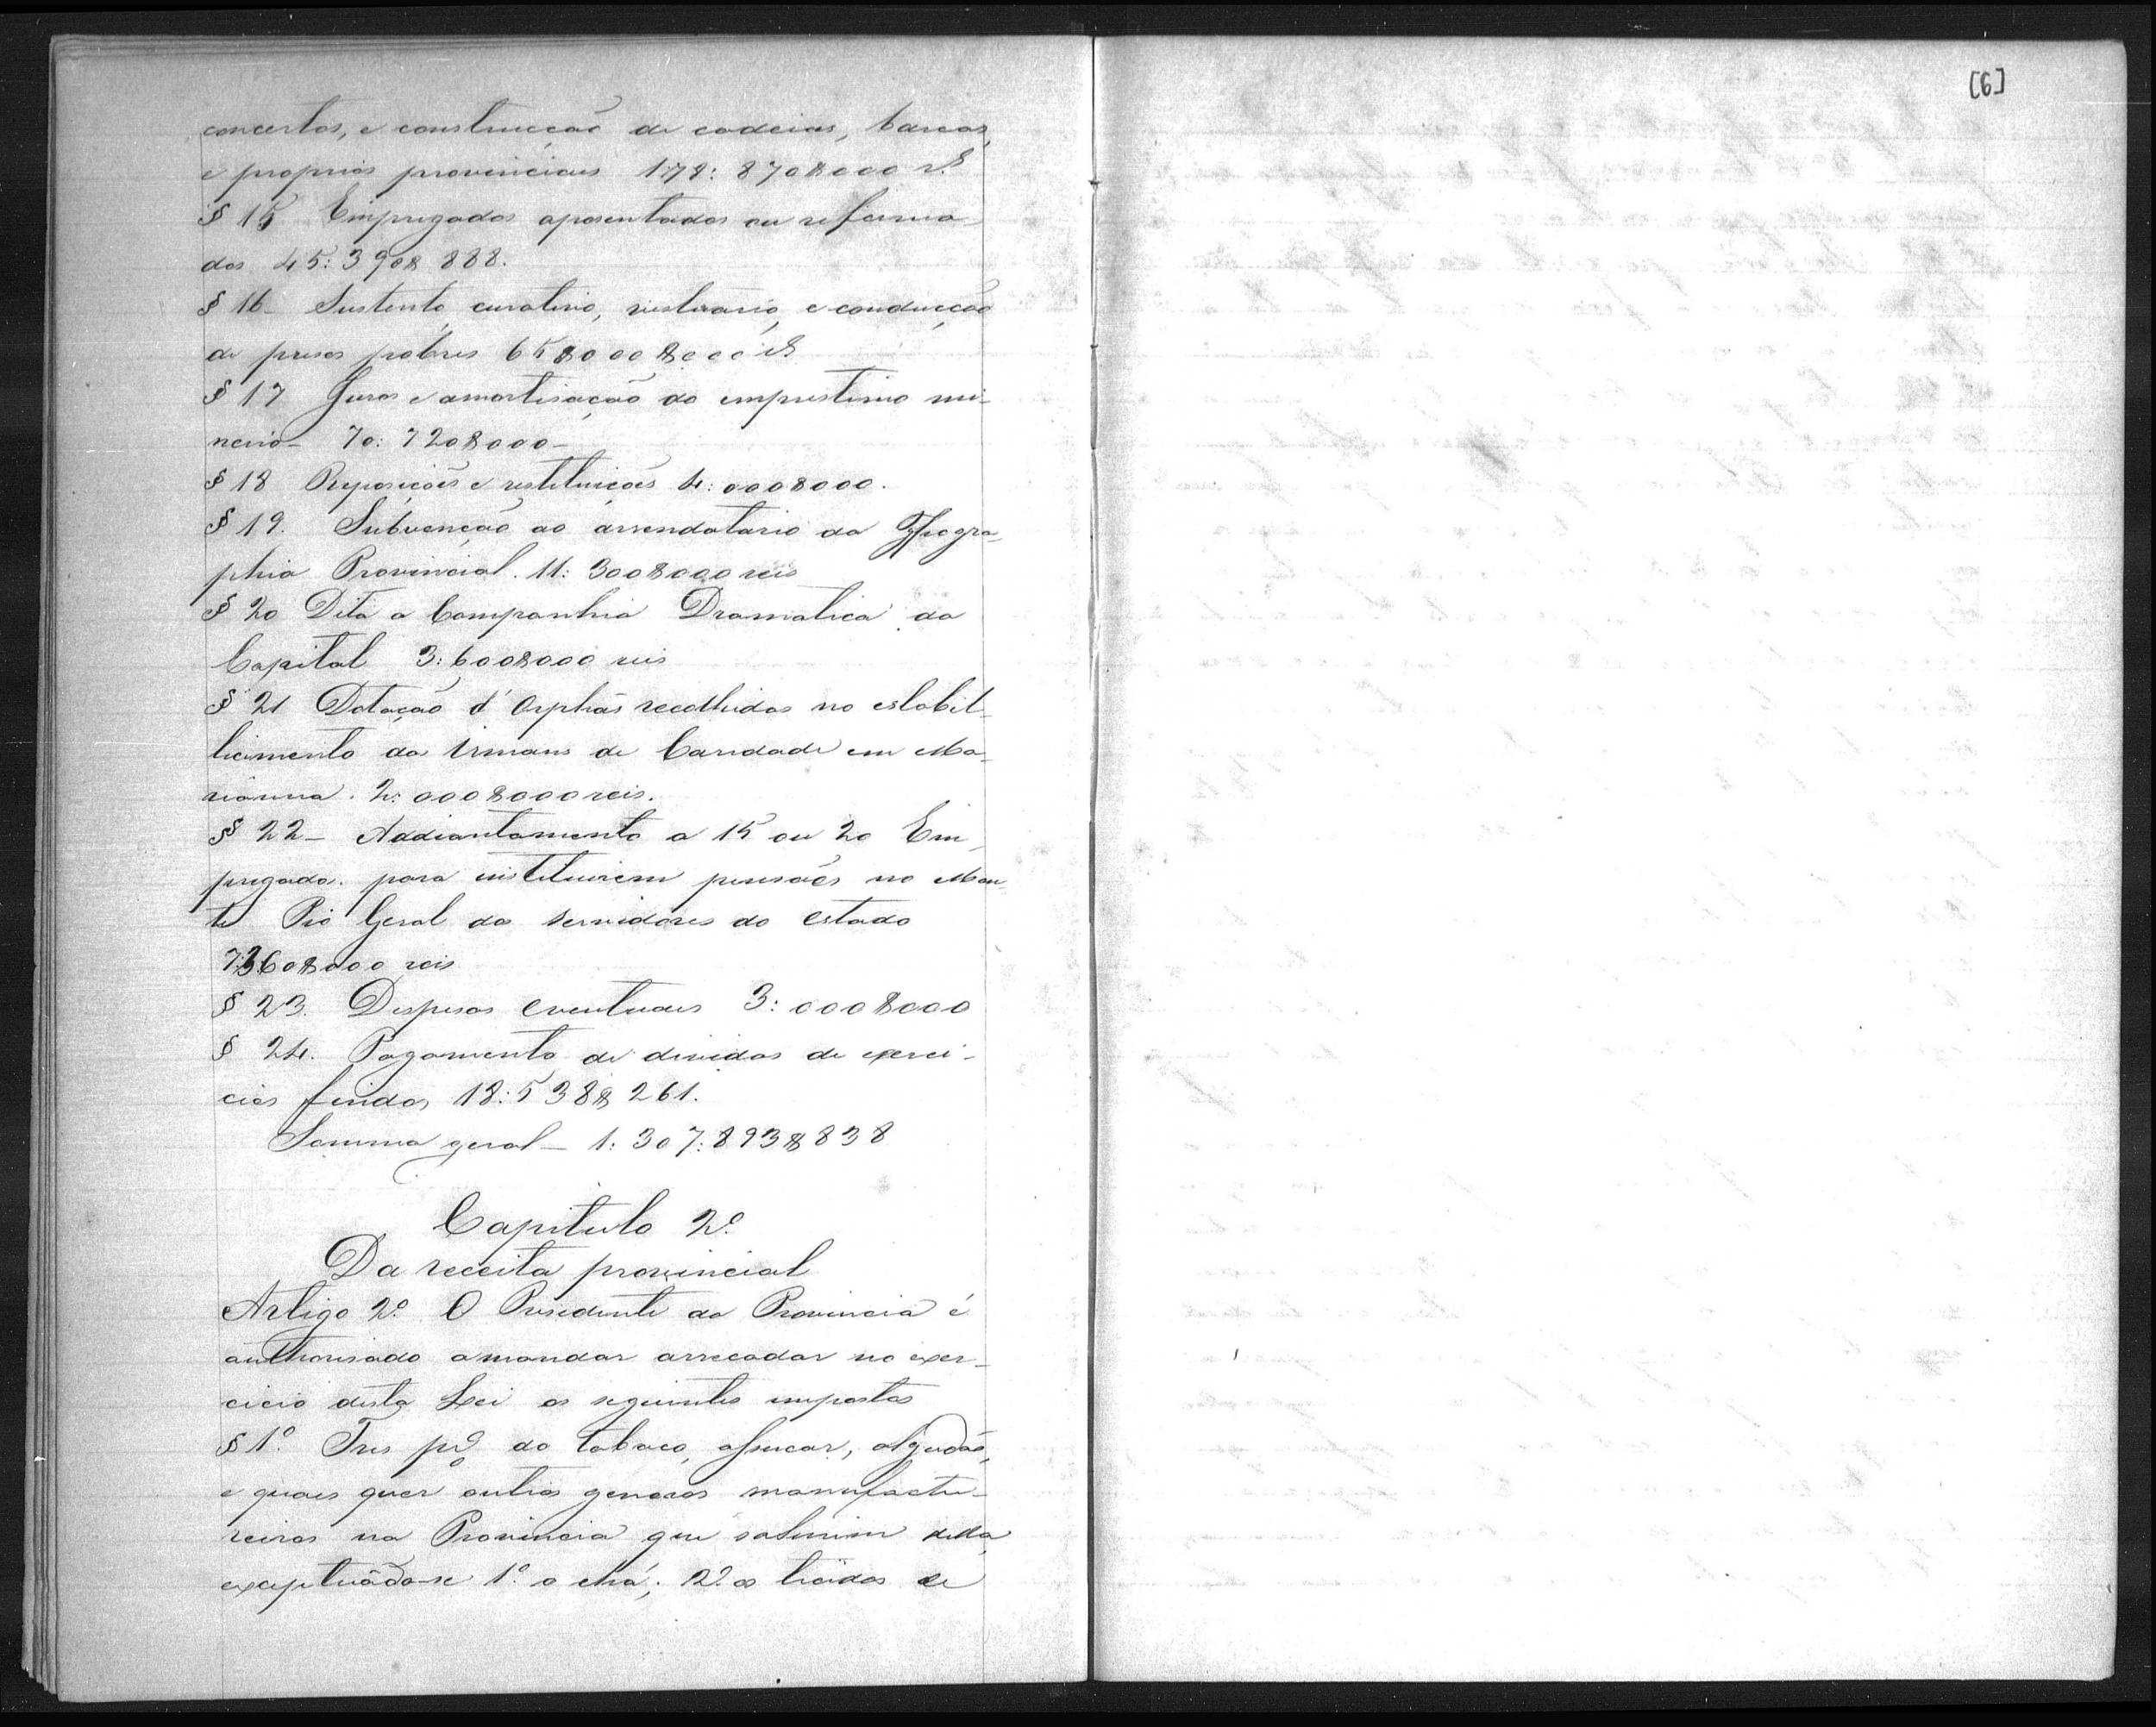 concertos, e construcção de cadeias, barcas,
e proprios provinciaes 179:870$000 rs
§ 15 Empregados aposentados ou reforma-
dos 45:390$888.
§ 16 - Sustento, curativo, vestuario, e conducção
de presos pobres 65$000$000 rs
§ 17 Juros e amortisação do emprestimo mi-
neiro - 70:720$000 -
§ 18 Reposições e restituições 4:000$000.
§ 19. Subvenção ao arrendatario da Typogra-
phia Provincial. 11:300$000 reis
§ 20 Dita a Companhia Dramatica da
Capital 3:600$000 reis
§ 21 Dotação d'Orphãs recolhidas no estabil-
licimento das Irmans de Caridade em Ma-
rianna. 2:000$000 reis.
§ 22 - Addiantamento a 15 ou 20 Em-
pregados. para instituirem pensões no Mon-
te Pio Geral dos Servidores do Estado
7:360$000 reis
§ 23. Despesas eventuaes 3:000$000
§ 24. Pagamento de dividas de exerci-
cios findos, 18:538$261.
Somma geral - 1:307:893$838
Capitulo 2º
Da receita provincial
Artigo 2º O Presidente da Provincia é
authorisado a mandar arrecadar no exer-
cicio desta Lei os seguintes impostos
§ 1º Tres p% do tabaco, assucar, algodão,
e quaes quer outros generos manufactu-
reiros na Provincia que sahirem della,
exceptuãdo-se 1º o chá; 2º os tecidos de
[6]